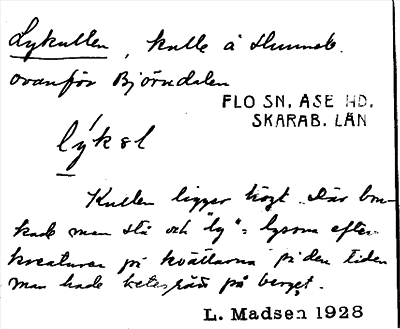 Lykullen, kulle å Hunneb.
ovanför Björndalen
FLO SN. ASE HD.
SKARAB. LÄN
lýkəl
Kullen ligger högt. Där bru-
kade man stå och "ly" = lyssna efter
kreaturen på kvällarna på den tiden
man hade betesgång på berget.
L. Madsen 1928